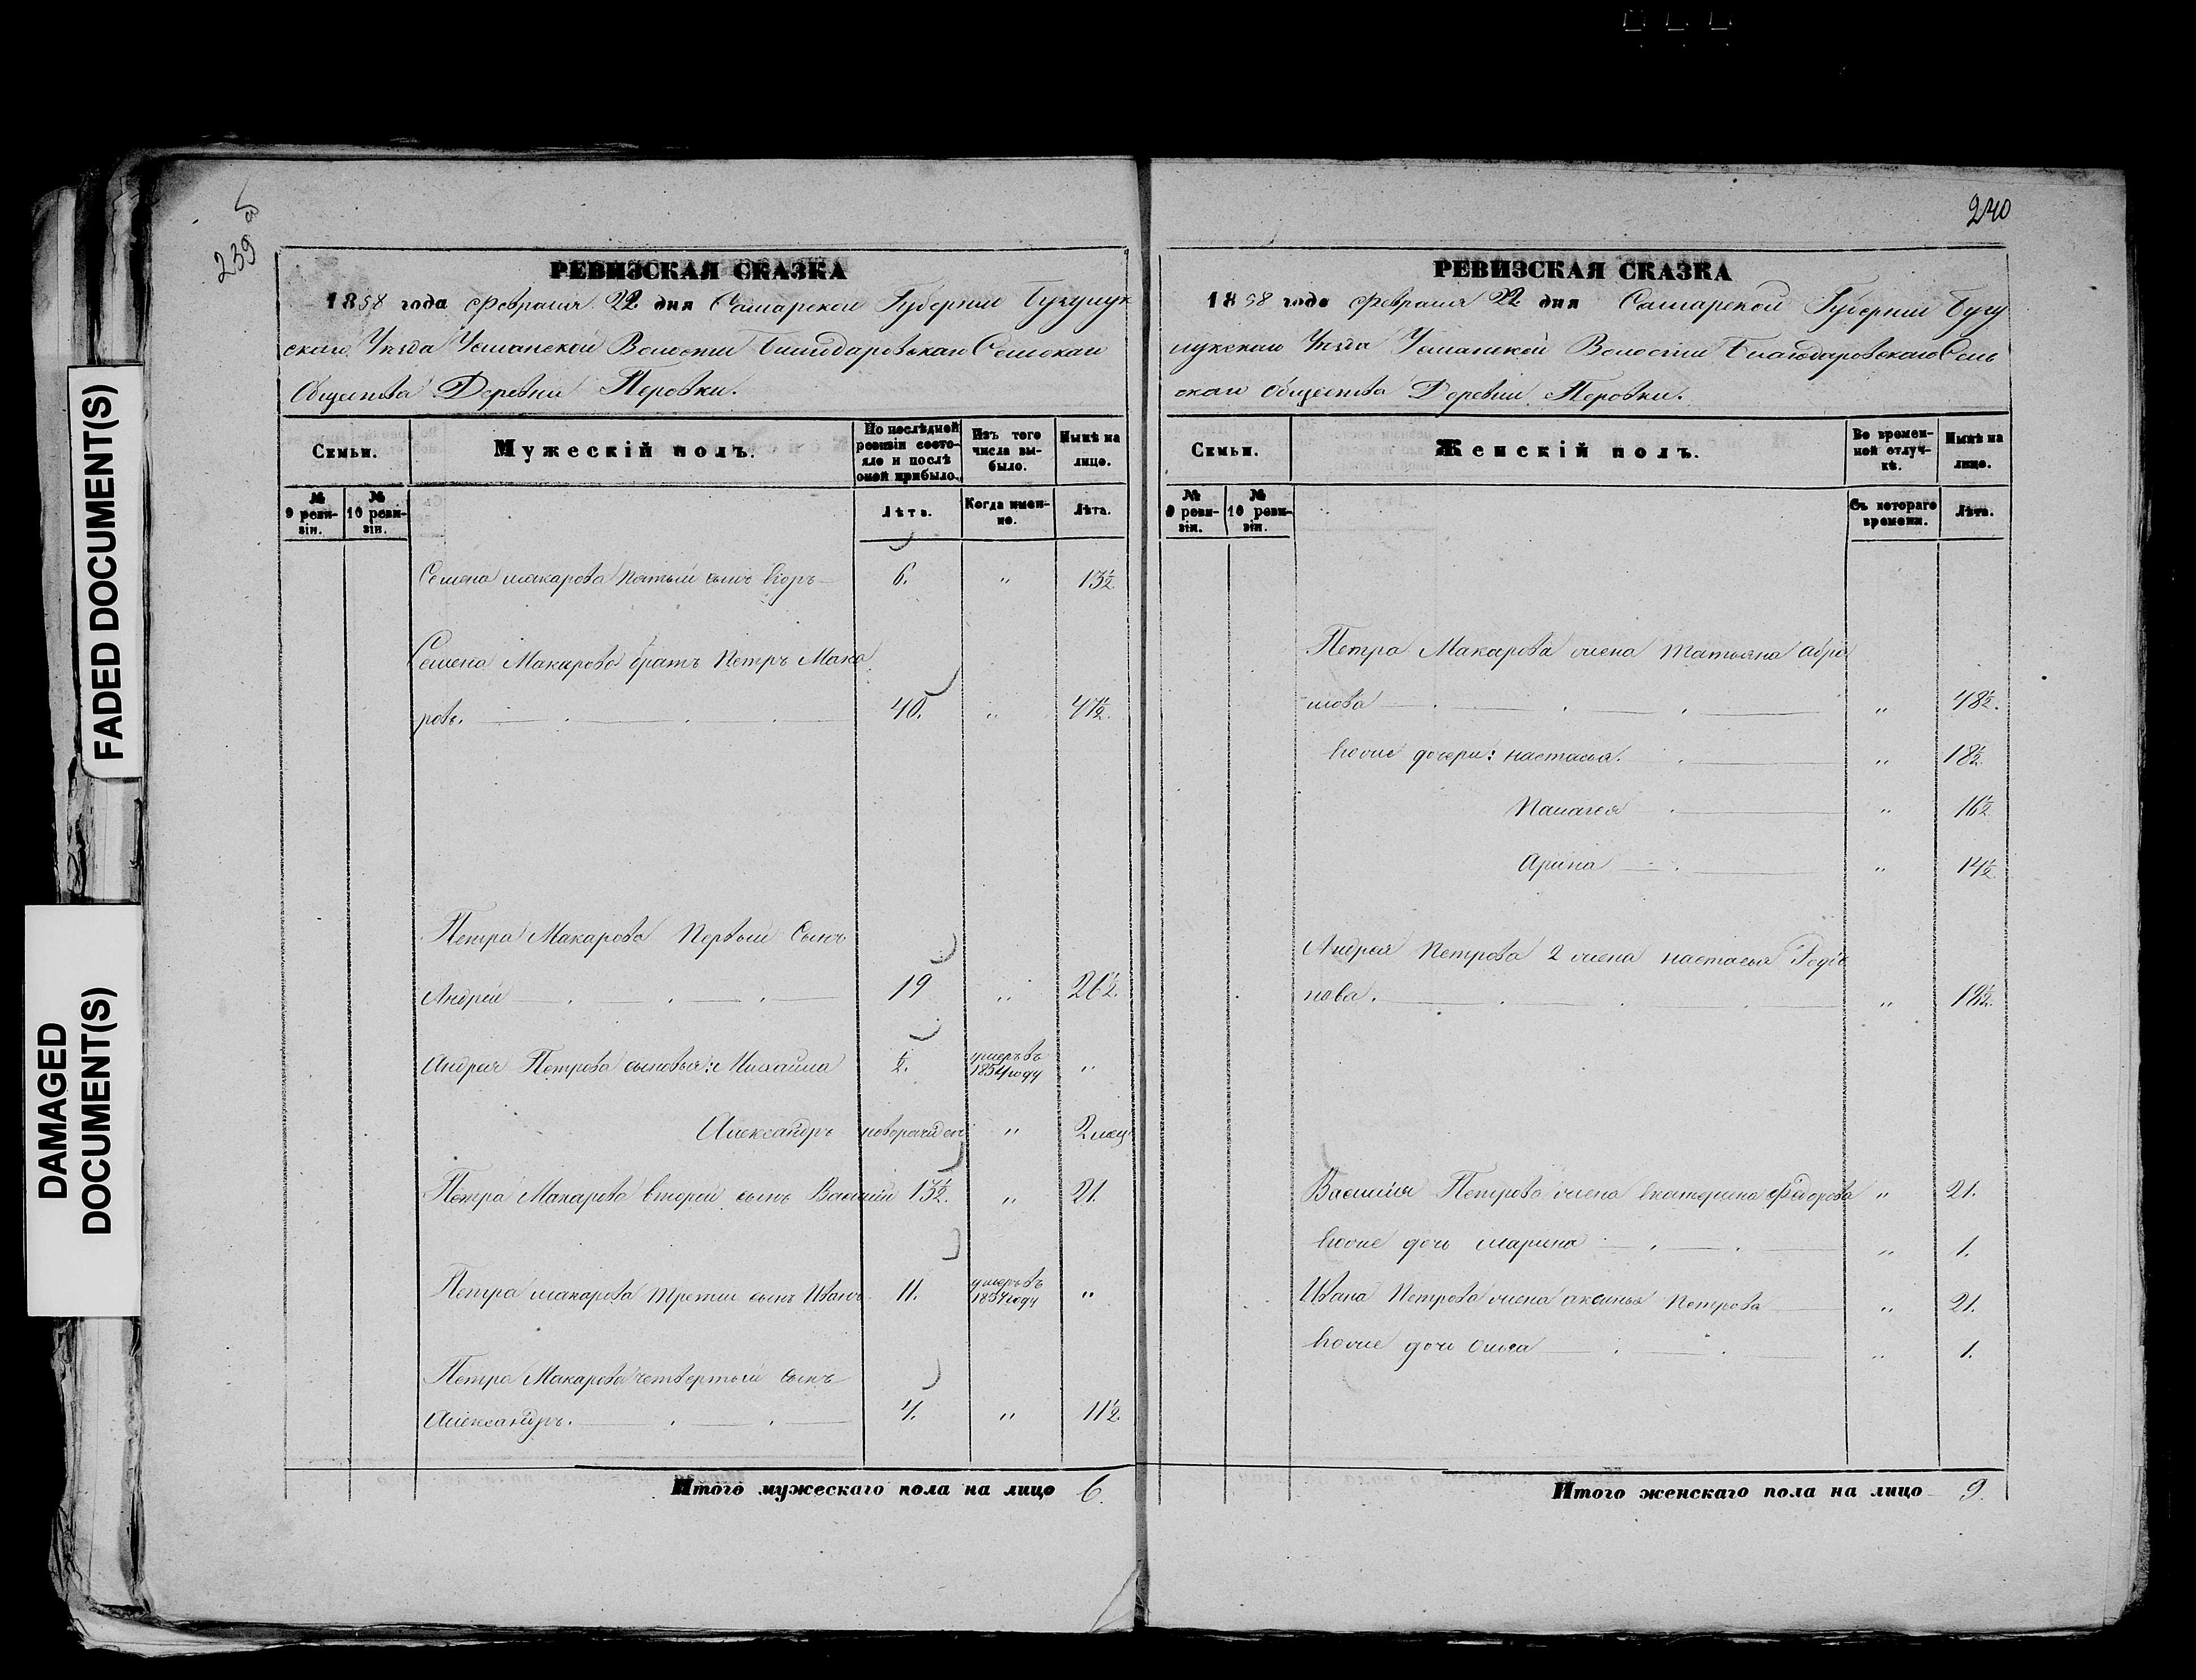 FADED DOCUMENT(S)
DAMAGED
DOCUMENT(S)
239
РЕВИЗСКАЯ СКАЗКА
1858 года Февраля 22 дня Самарской Губернии Бугурук
скаго Уезда Усманской Волости Благодаровскаго Сельскаго
Общества Деревни Перовки.
Семьи.
Мужескій полъ.
По послѣдней
ревизіи состо-
яло и послѣ
оной прибыло.
Изъ того
числа вы-
было.
Нынѣ на
лицо.
№
9 реви-
зіи.
№
10 реви-
зіи.
Лѣта.
Когда имен-
но.
Лѣта.
Семена макарова пятый сынъ Егоръ 6. " 13½
Семена Макарова братъ Петръ Мака
ровъ. 40. " 47½.
Петра Макарова Первый Сынъ
Андрей 19 " 26½.
Андрея Петрова сыновья: Михайла ½. умеръ въ 1854 году "
Александръ новорожден " 2 мец
Петра Макарова второй сынъ Василий 13½. " 21.
Петра макарова третий сынъ Иванъ 11. умеръ въ 1857 году "
Петра Макарова четвертый Сынъ
Александръ. 4. " 11½.
Итого мужескаго пола на лицо 6.
240
РЕВИЗСКАЯ СКАЗКА
1858 года Февраля 22 дня Самарской Губернии Бугу
рукскаго Уезда Усманской Волости Благодаровскаго Сель
скаго Общества Деревни Перовки.
Семьи.
Женскій полъ.
Во времен-
ной отлуч-
кѣ.
Нынѣ на
лицо.
№
9 реви-
зіи.
№
10 реви-
зіи.
Съ котораго
времени.
Лѣта.
Петра Макарова жена Татьяна Абра
мова " 48½.
Ево же дочери: настасья. " 18½
Палагея " 16½
Арина " 14½
Андрея Петрова 2 жена настасья Родіо
нова. " 19½.
Василия Петрова жена екатерина Федорова " 21.
Ево же дочь марина " 1.
Ивана Петрова жена аксинья Петрова " 21.
Ево же дочь " 1.
Итого женскаго пола на лицо 9.